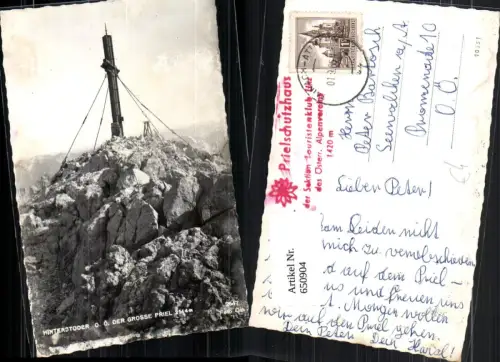 HINTERSTODER O. Ö. DER GROSSE PRIEL 2514 m
Prielschutzhaus
der Sektion Touristenklub Linz
des Österr. Alpenvereins
1420 m
Artikel Nr.
650904
Herrn
Peter
Seewalchen a/A
Promenade 10
O.Ö.
Lieber Peter!
Leiden nicht
mich zu verabschieden
auf dem Priel -
uns und freuen uns
Morgen wollen
wir auf den Priel gehen.
Dein Peter Dein Karli!